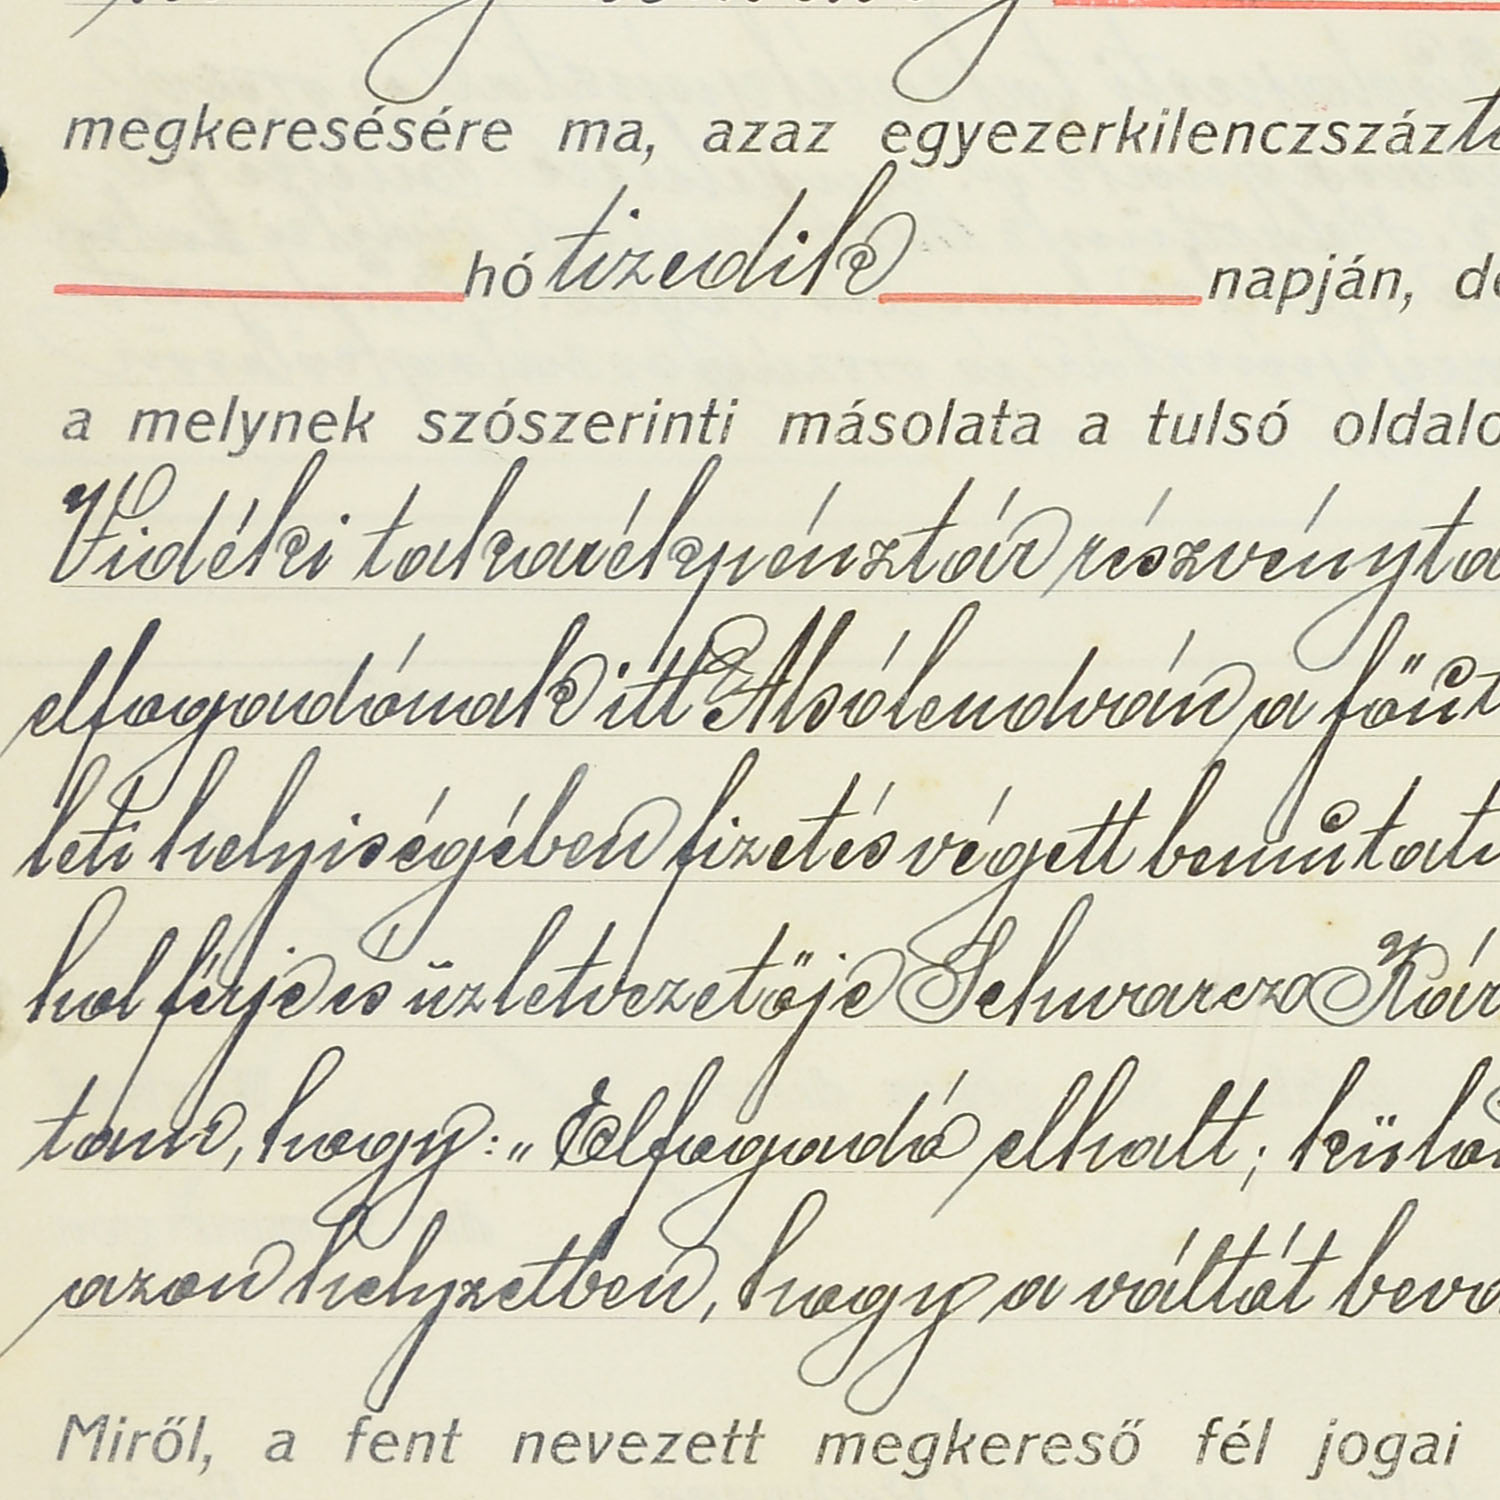 megkeresésére ma, azaz egyezerkilenczszáz
hó tizedik napján, de
a melynek szószerinti másolata a tulsó oldalo
Vidéki takarékpénztár részvényta
elfogadónak itt Alsólendván a fönt
leti helyiségében fizetés végett bemutat
hol férje és üzletvezetője Schwarcz Kár
tam, hogy: „Elfogadó elhalt; külö
azon helyzetben, hogy a váltót bevá
Miről, a fent nevezett megkereső fél jogai